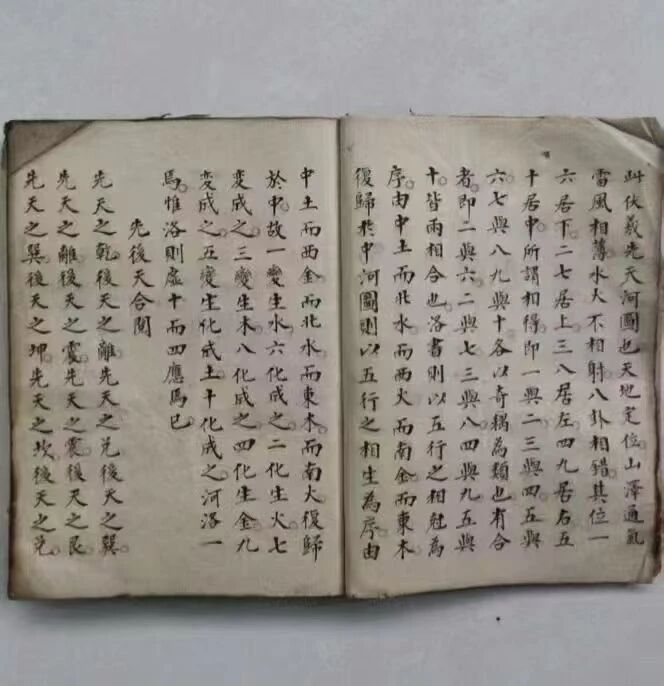 此伏羲先天河圖也天地定位山澤通氣
雷風相薄水火不相射八卦相錯其位一
六居下二七居上三八居左四九居右五
十居中所謂相得即一與二三與四五與
六七與八九與十各以奇耦為類也有合
者即一與六二與七三與八四與九五與
十皆兩相合也洛書則以五行之相尅為
序由中土而北水而西火而南金而東木
復歸於中河圖則以五行之相生為序由
中土而西金而北水而東木而南火復歸
於中故一變生水六化成之二化生火七
變成之三變生木八化成之四化生金九
變成之五變生化成土十化成之河洛一
焉惟洛則虛十而四應焉已
先後天合
先天之乾後天之離先天之兌後天之巽
先天之離後天之震先天之震後天之艮
先天之巽後天之坤先天之坎後天之兌